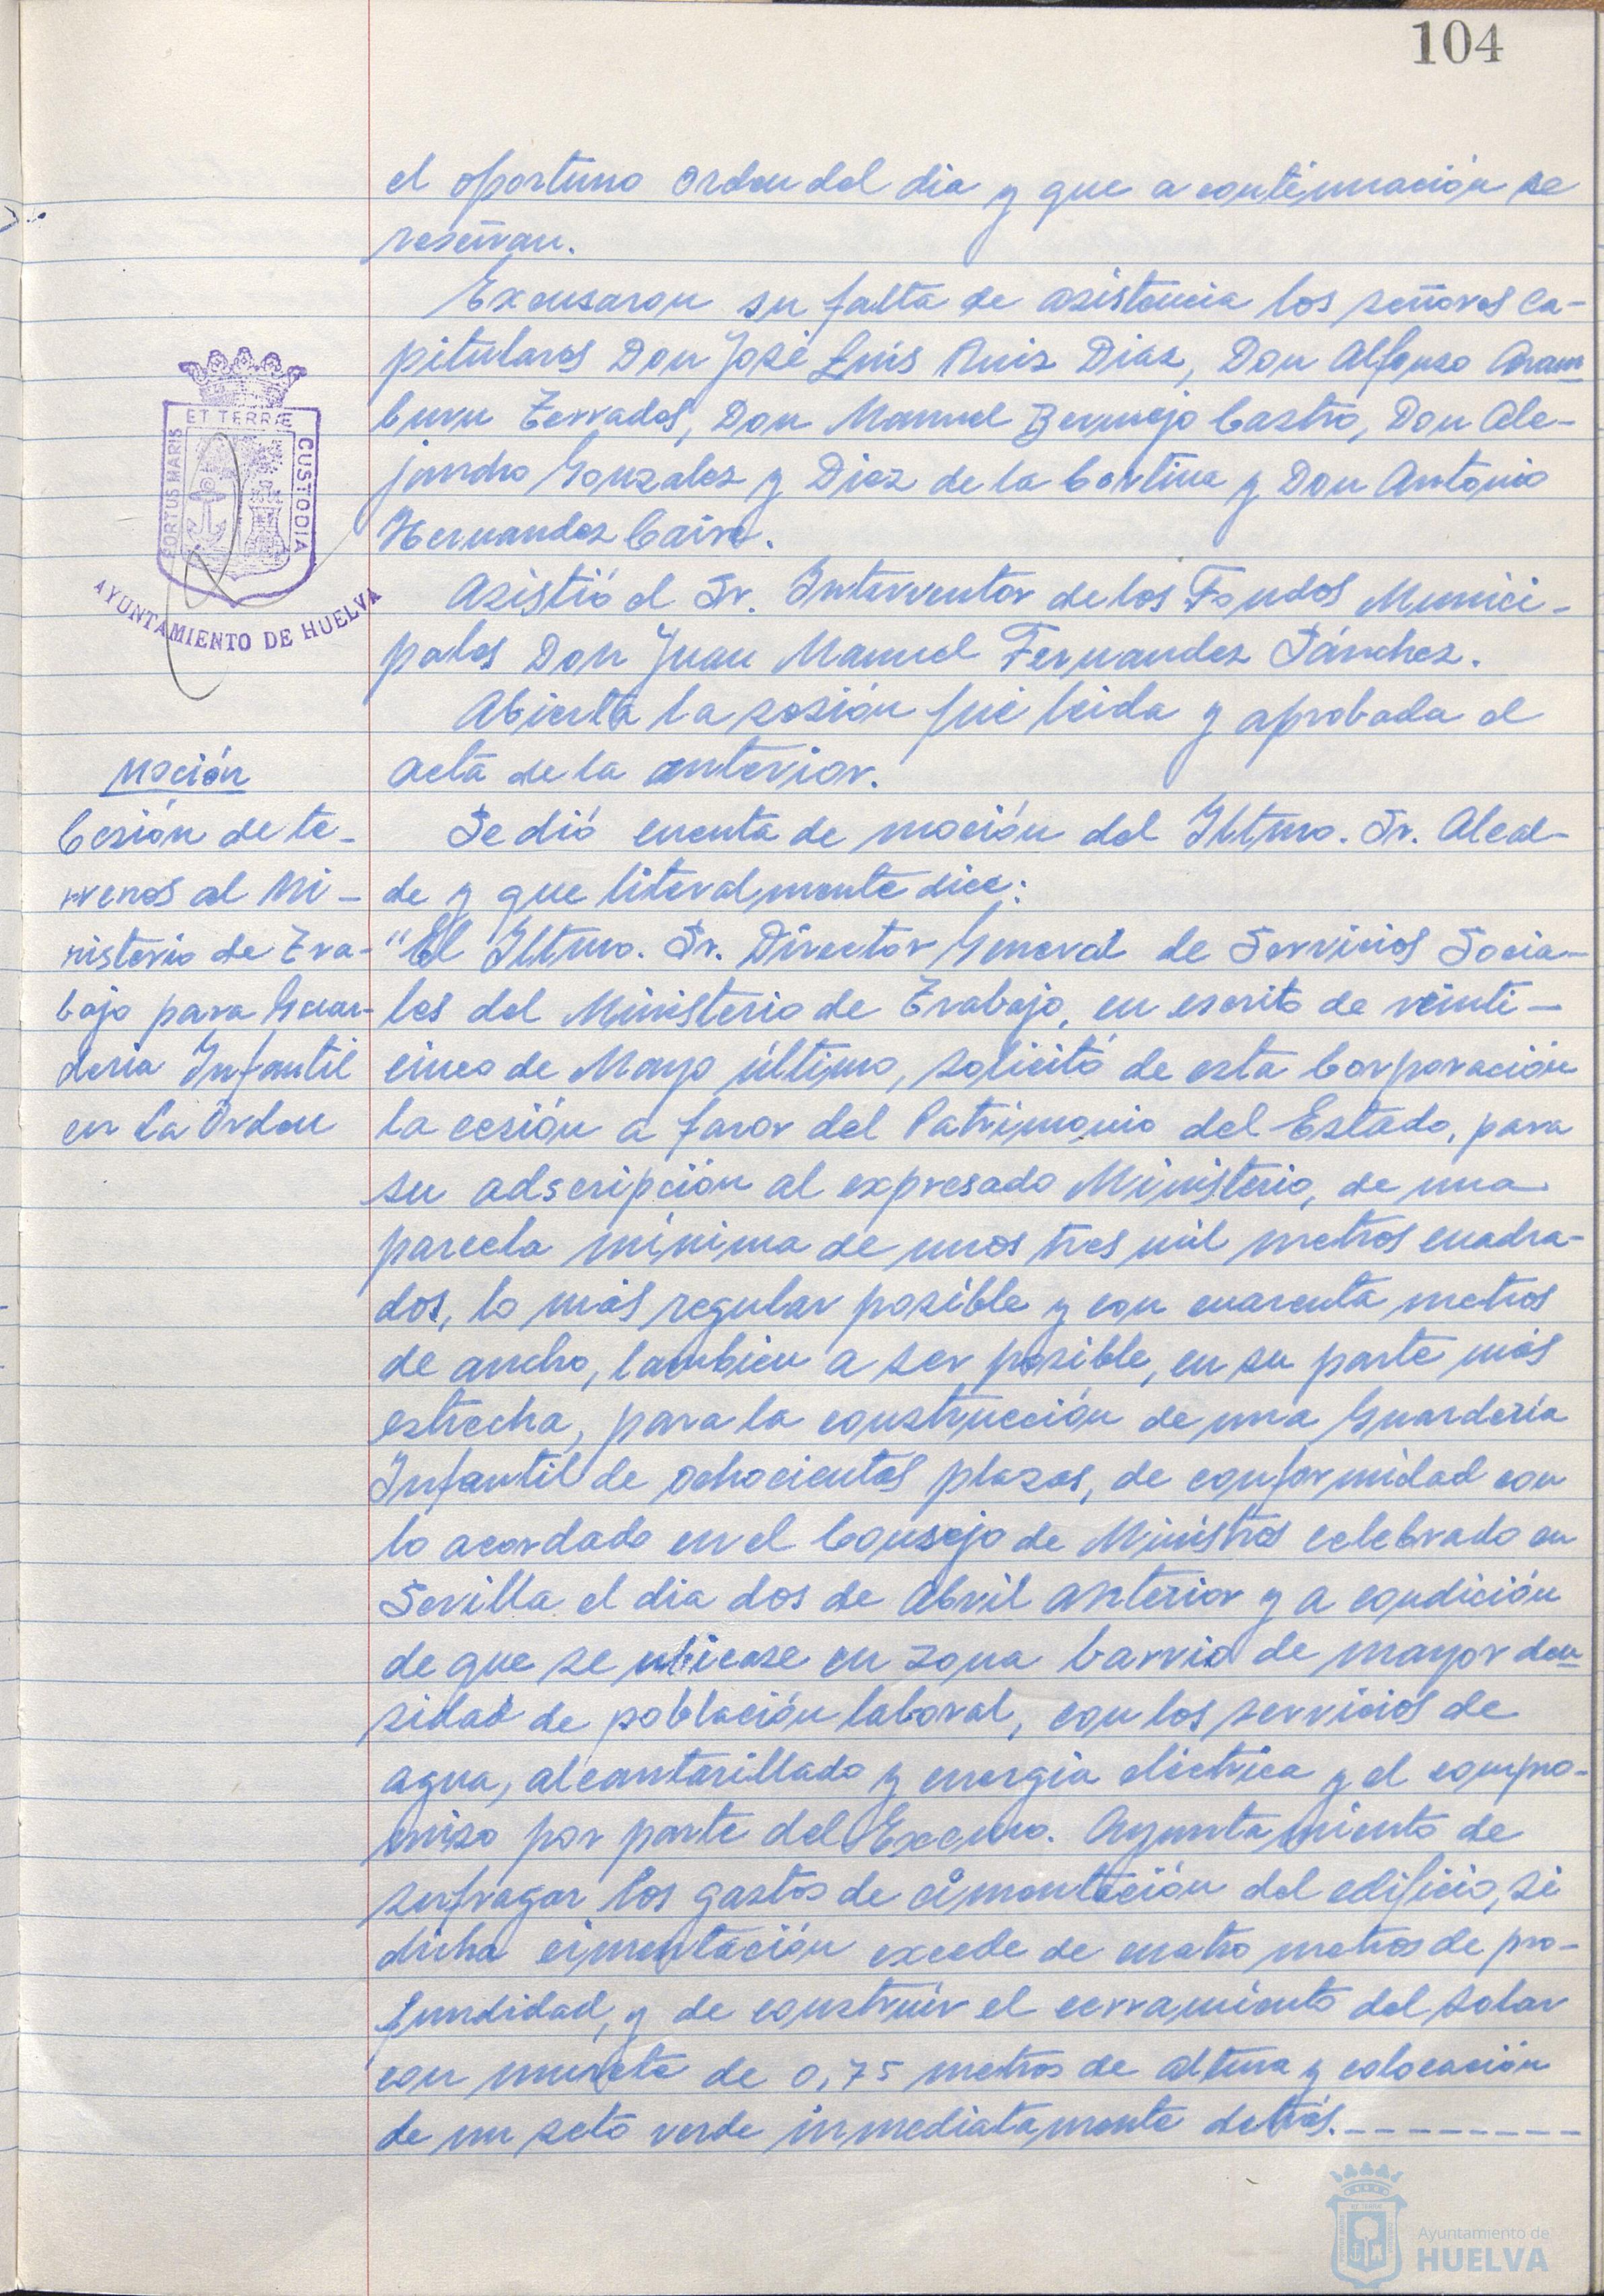 104
el oportuno orden del dia y que a continuación se
reseñan.
Excusaron su falta de asistencia los señores Ca-
pitulares Don José Luis Ruiz Diaz, Don Alfonso Aram-
buru Terrades, Don Manuel Bermejo Castro, Don Ale-
jandro Gonzalez y Diez de la Cortina y Don Antonio
Hernandez Caire.
Asistió el Sr. Interventor de los Fondos Munici-
pales Don Juan Manuel Fernandez Sánchez.
Abierta la sesión fué leida y aprobada el
acta de la anterior.
ET TERRÆ
PORTUS MARIS
CUSTODIA
AYUNTAMIENTO DE HUELVA
Moción
Cesión de te-
rrenos al Mi-
nisterio de Tra-
bajo para Guar-
deria Infantil
en La Orden
Se dió cuenta de moción del Iltmo. Sr. Alcal-
de y que literalmente dice:
"El Iltmo. Sr. Director General de Servicios Socia-
les del Ministerio de Trabajo, en escrito de veinti-
cinco de Mayo último, solicitó de esta Corporación
la cesión a favor del Patrimonio del Estado, para
su adscripción al expresado Ministerio, de una
parcela mínima de unos tres mil metros cuadra-
dos, lo más regular posible y con cuarenta metros
de ancho, tambien a ser posible, en su parte más
estrecha, para la construcción de una Guardería
Infantil de ochocientas plazas, de conformidad con
lo acordado en el Consejo de Ministros celebrado en
Sevilla el dia dos de Abril anterior y a condición
de que se ubicase en zona barrio de mayor den-
sidad de población laboral, con los servicios de
agua, alcantarillado y energia eléctrica y el compro-
miso por parte del Excmo. Ayuntamiento de
sufragar los gastos de cimentación del edificio, si
dicha cimentación excede de cuatro metros de pro-
fundidad, y de construir el cerramiento del solar
con murete de 0,75 metros de altura y colocación
de un seto verde inmediatamente detrás.---------
Ayuntamiento de
HUELVA